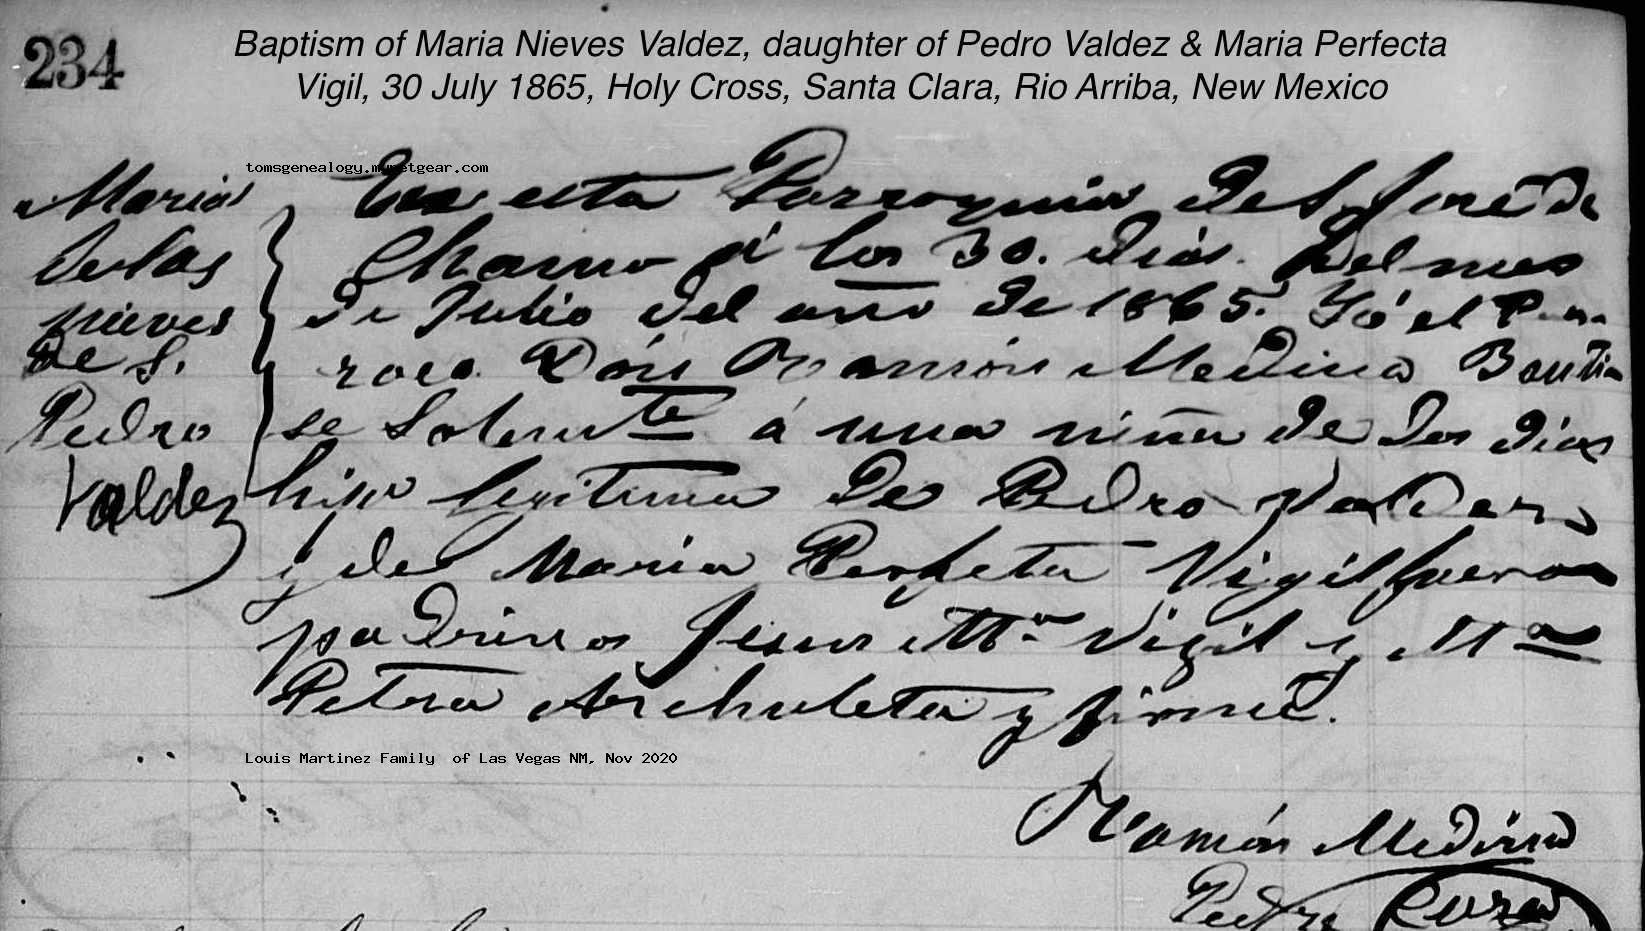 234
Baptism of Maria Nieves Valdez, daughter of Pedro Valdez & Maria Perfecta
Vigil, 30 July 1865, Holy Cross, Santa Clara, Rio Arriba, New Mexico
tomsgenealogy.mynetgear.com
Maria
de las
nieves
de S.
Pedro
Valdez
En esta Parroquia de S. José de
Chama á los 30. dias. del mes
de Julio del año de 1865. Yó el Pa-
roco Dón Ramón Medina Bauti-
se Solemte á una niña de dos dias
hija legitima de Pedro Valdez
y de Maria Perfeta Vigil fueron
padrinos Jesus Ma Vigil y Ma
Petra Archuleta y firmé.
Louis Martinez Family of Las Vegas NM, Nov 2020
Ramón Medina
Cura